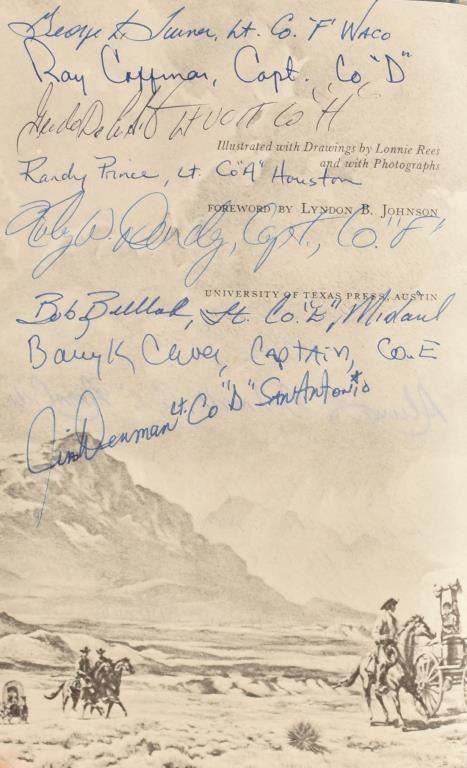 George L. Turner, Lt. Co. "F" Waco
Ray Coffman, Capt. Co "D"
Co "H"
Illustrated with Drawings by Lonnie Rees
and with Photographs
Randy Prince, Lt. Co "A" Houston
FOREWORD BY LYNDON B. JOHNSON
Capt., Co. "F"
UNIVERSITY OF TEXAS PRESS, AUSTIN
Bob Bullock, Lt. Co. "E", Midland
Barry K Caver, CAPTAIN, Co. E
Jim Denman Lt. Co "D" SAN ANTONIO